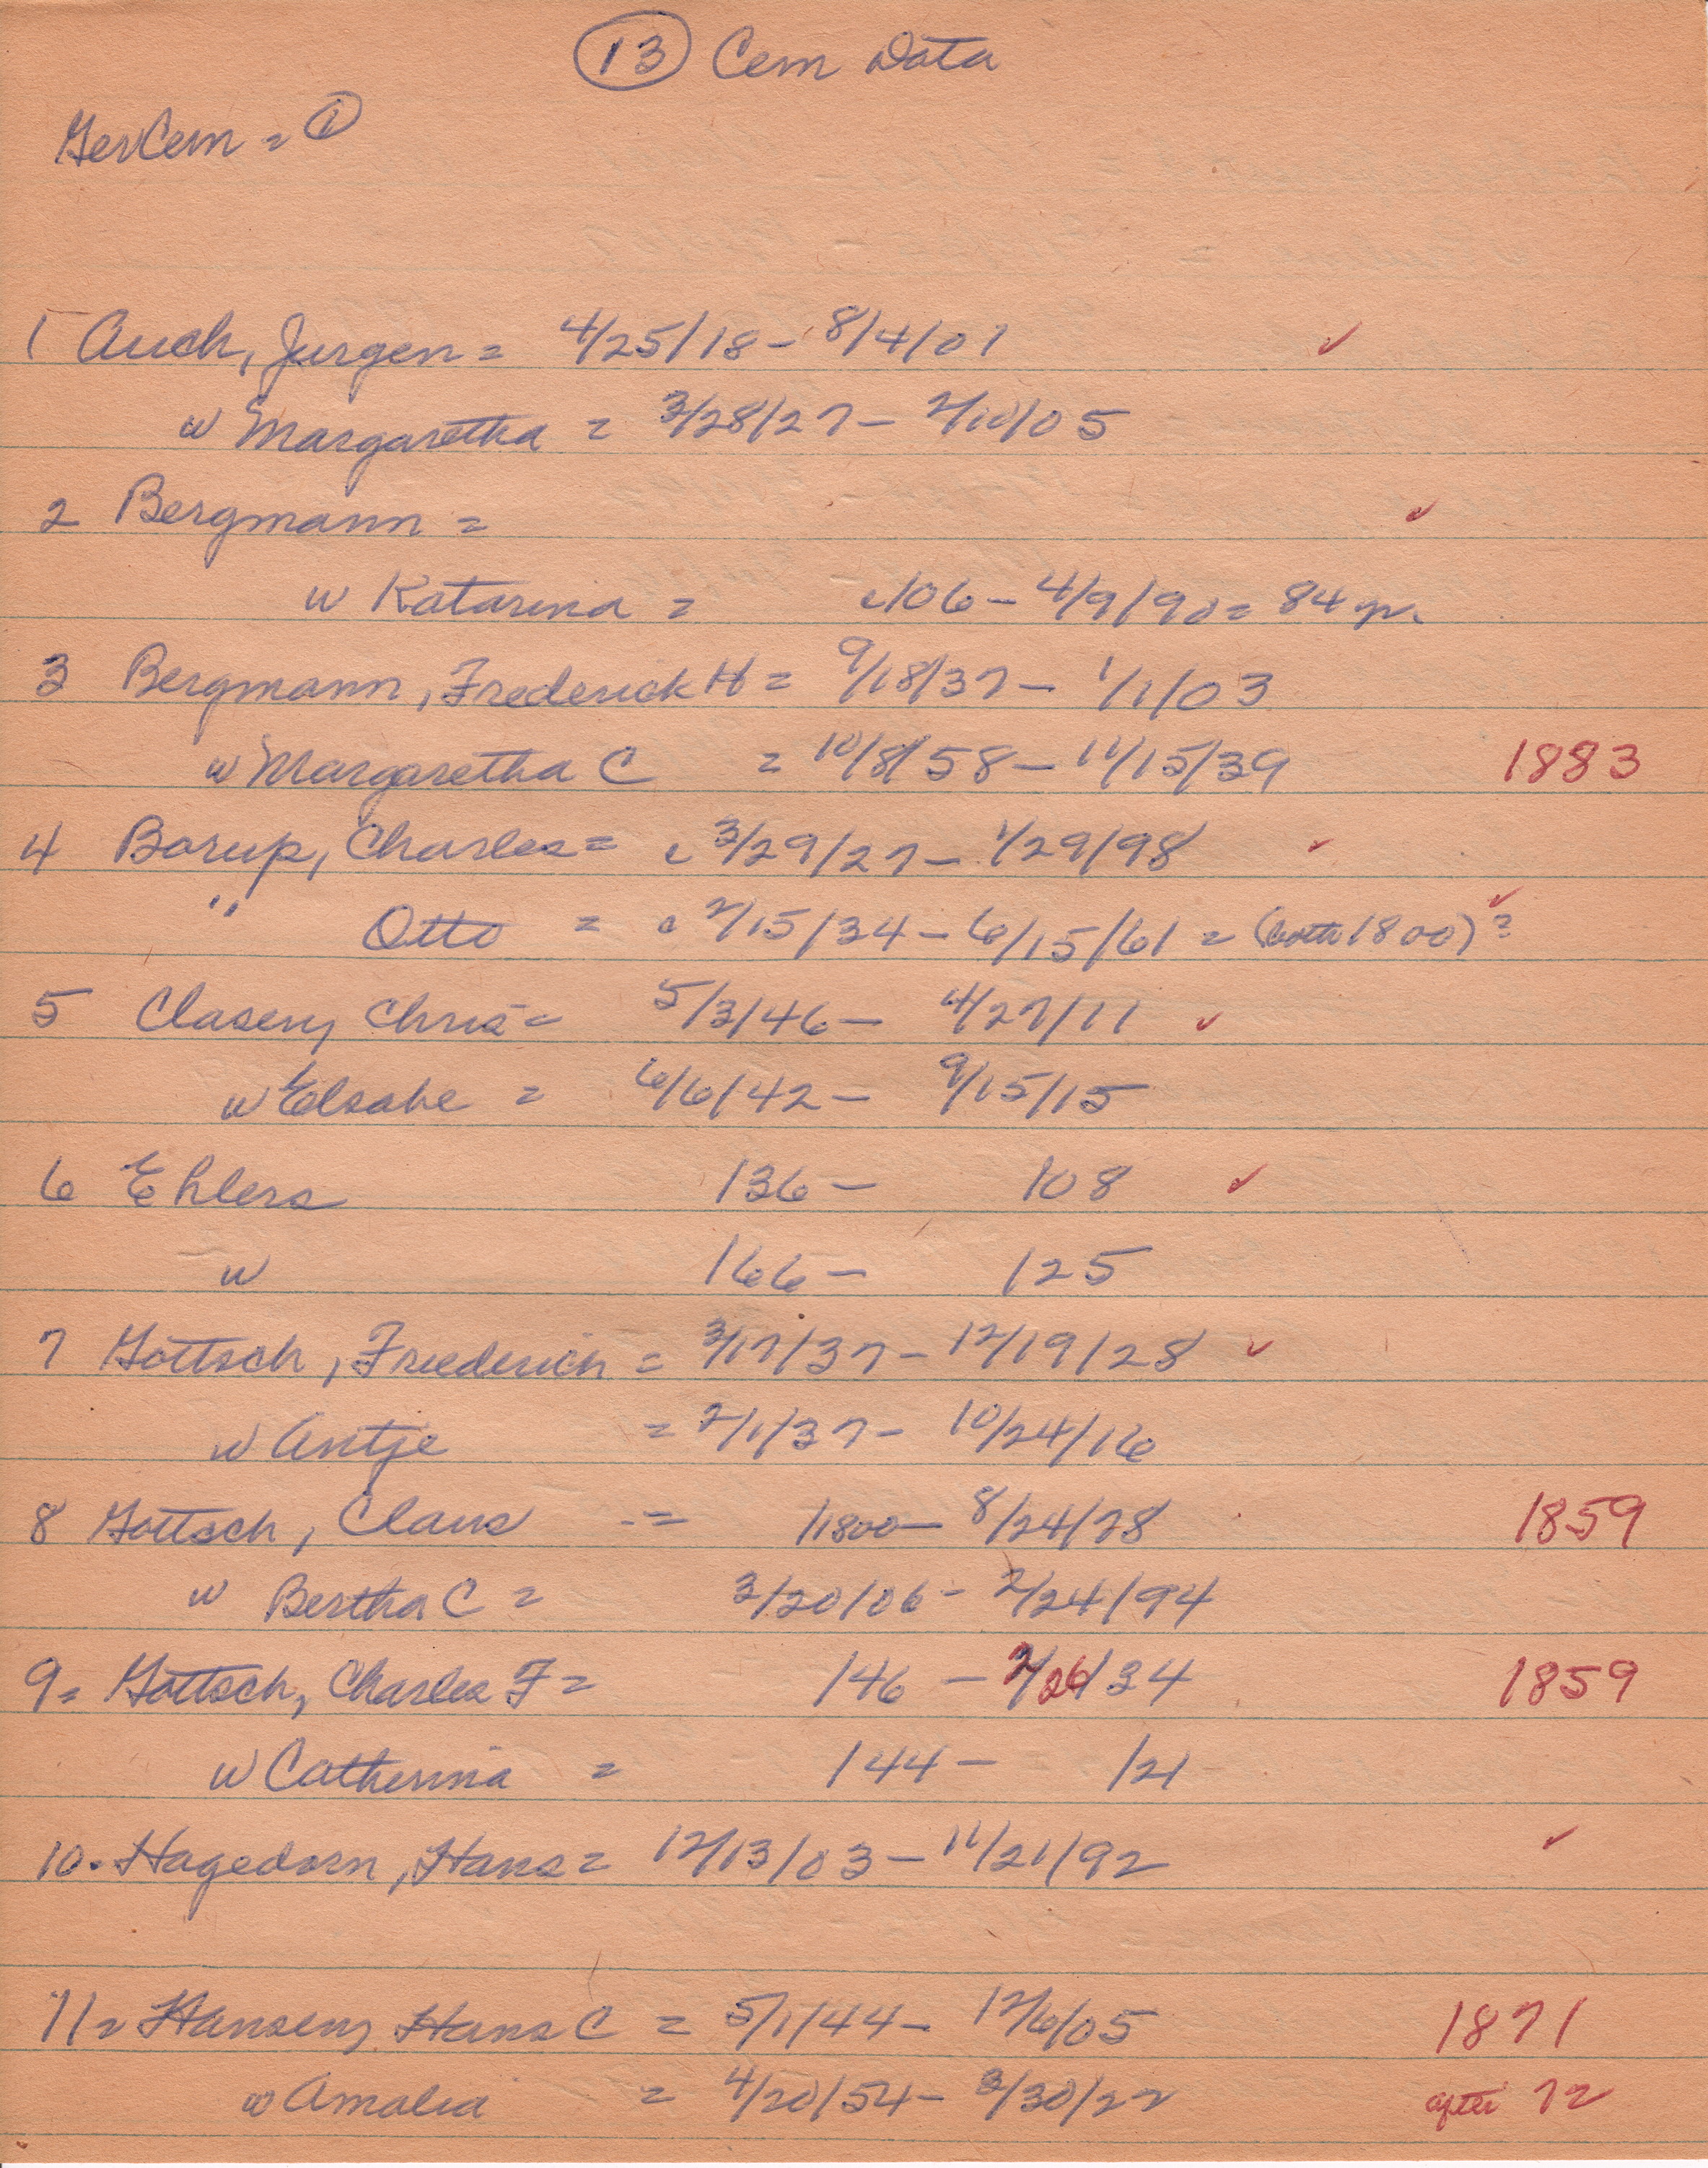 (13) Cem Data
GerCem = (1)
1 Auch, Jurgen = 4/25/18 - 8/4/01 ✓
w Margaretha = 3/28/27 - 2/10/05
2 Bergmann = ✓
w Katarina = c/06 - 4/9/90 = 84 yr.
3 Bergmann, Frederick H = 9/18/37 - 1/1/03
w Margaretha C = 10/8/58 - 11/15/39 1883
4 Borup, Charles = c 3/29/27 - 1/29/98 ✓
" Otto = c 2/15/34 - 6/15/61 = (both 1800)? ✓
5 Clasen, Chris = 5/3/46 - 4/27/11 ✓
w Elsabe = 6/6/42 - 9/15/15
6 Ehlers /36 - /08 ✓
w /66 - /25
7 Gottsch, Friederich = 3/17/37 - 12/19/28 ✓
w Antje = 2/1/37 - 10/24/16
8 Gottsch, Claus = /1800 - 8/24/78 1859
w Bertha C = 3/20/06 - 2/24/94
9 = Gottsch, Charles F = /46 - 2/26/34 1859
w Catherina = /44 - /21
10. Hagedorn, Hans = 12/13/03 - 11/21/92 ✓
11 = Hansen, Hans C = 5/1/44 - 12/6/05 1871
w Amalia = 4/20/54 - 3/30/22 after 72